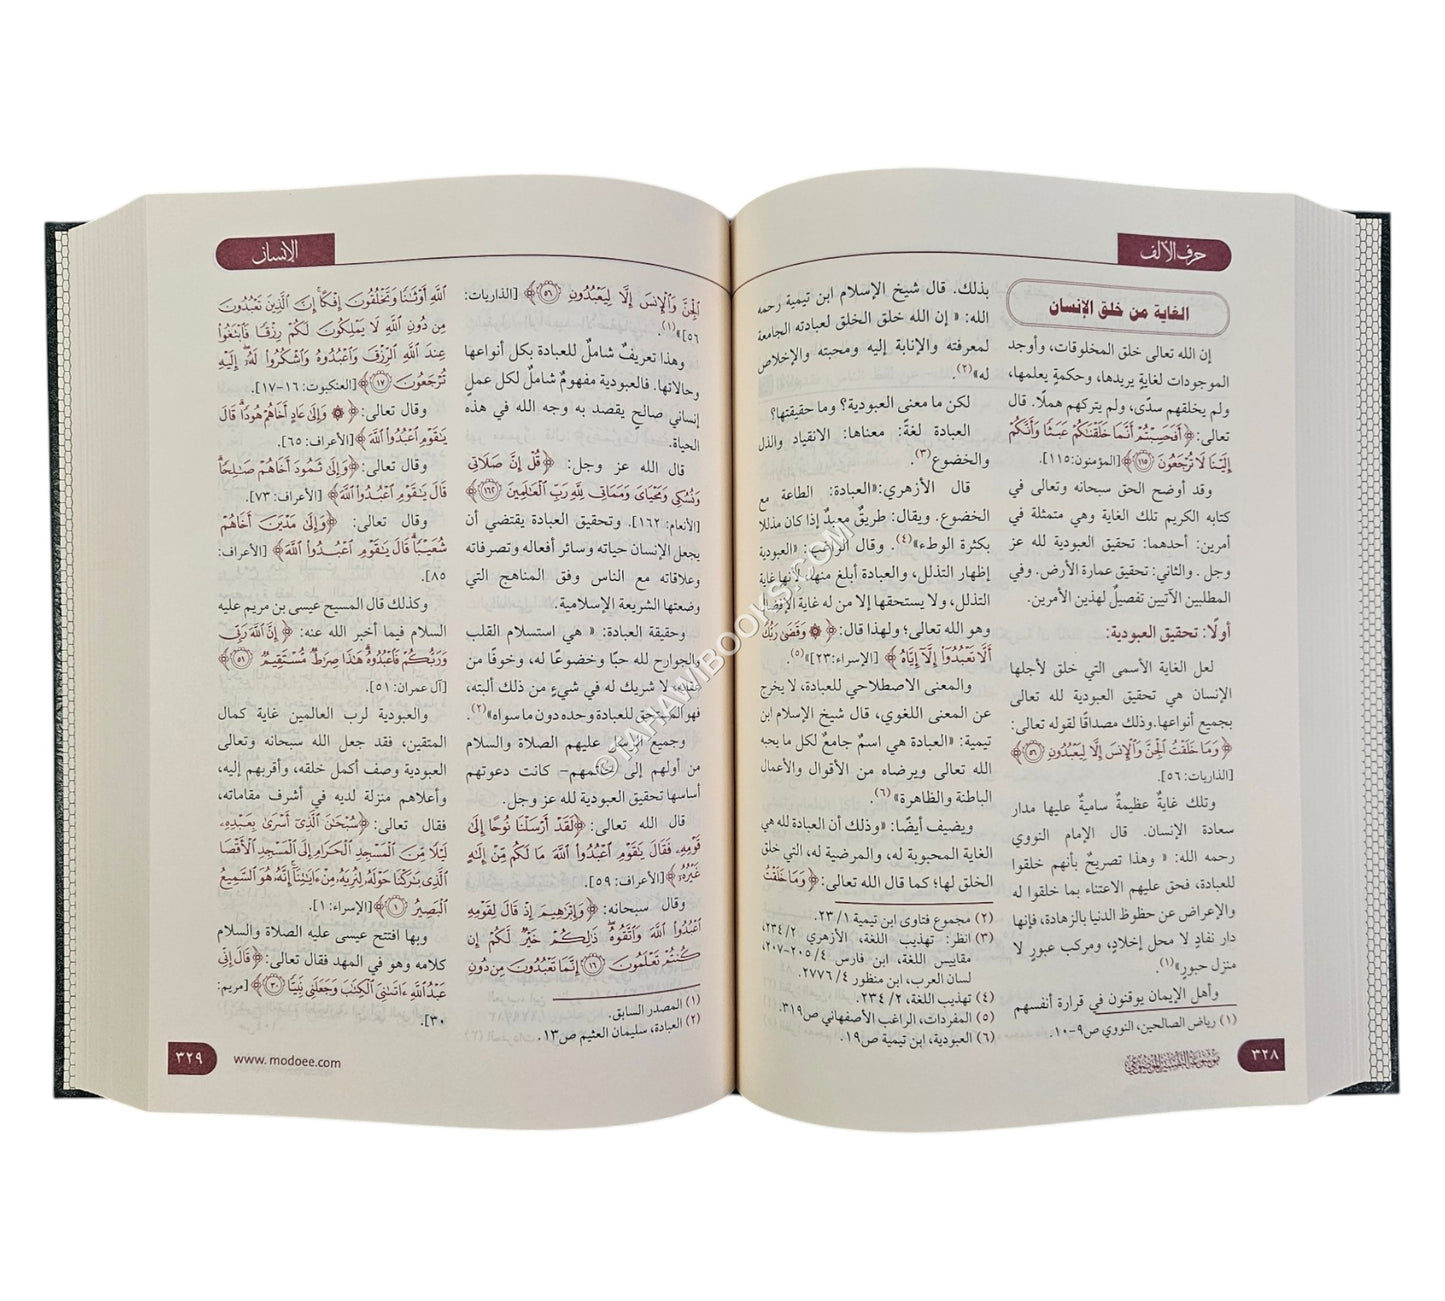 حرف الألف
الغاية من خلق الإنسان
إن الله تعالى خلق المخلوقات، وأوجد
الموجودات لغايةٍ يريدها، وحكمةٍ يعلمها،
ولم يخلقهم سدًى، ولم يتركهم هملًا. قال
تعالى: ﴿أَفَحَسِبْتُمْ أَنَّمَا خَلَقْنَاكُمْ عَبَثًا وَأَنَّكُمْ
إِلَيْنَا لَا تُرْجَعُونَ ١١٥﴾ [المؤمنون: ١١٥].
وقد أوضح الحق سبحانه وتعالى في
كتابه الكريم تلك الغاية وهي متمثلة في
أمرين: أحدهما: تحقيق العبودية لله عز
وجل. والثاني: تحقيق عمارة الأرض. وفي
المطلبين الآتيين تفصيلٌ لهذين الأمرين.
أولًا: تحقيق العبودية:
لعل الغاية الأسمى التي خلق لأجلها
الإنسان هي تحقيق العبودية لله تعالى
بجميع أنواعها.وذلك مصداقًا لقوله تعالى:
﴿وَمَا خَلَقْتُ الْجِنَّ وَالْإِنسَ إِلَّا لِيَعْبُدُونِ ٥٦﴾
[الذاريات: ٥٦].
وتلك غايةٌ عظيمةٌ ساميةٌ عليها مدار
سعادة الإنسان. قال الإمام النووي
رحمه الله: « وهذا تصريحٌ بأنهم خلقوا
للعبادة، فحق عليهم الاعتناء بما خلقوا له
والإعراض عن حظوظ الدنيا بالزهادة، فإنها
دار نفادٍ لا محل إخلادٍ، ومركب عبورٍ لا
منزل حبورٍ»(١).
وأهل الإيمان يوقنون في قرارة أنفسهم
(١) رياض الصالحين، النووي ص٩-١٠.
بذلك. قال شيخ الإسلام ابن تيمية رحمه
الله: « إن الله خلق الخلق لعبادته الجامعة
لمعرفته والإنابة إليه ومحبته والإخلاص
له»(٢).
لكن ما معنى العبودية؟ وما حقيقتها؟
العبادة لغةً: معناها: الانقياد والذل
والخضوع(٣).
قال الأزهري:«العبادة: الطاعة مع
الخضوع. ويقال: طريقٌ معبدٌ إذا كان مذللا
بكثرة الوطء»(٤). وقال الراغب: «العبودية
إظهار التذلل، والعبادة أبلغ منها، لأنها غاية
التذلل، ولا يستحقها إلا من له غاية الإفضال
وهو الله تعالى؛ ولهذا قال: ﴿۞ وَقَضَىٰ رَبُّكَ
أَلَّا تَعْبُدُوا إِلَّا إِيَّاهُ﴾ [الإسراء:٢٣]»(٥).
والمعنى الاصطلاحي للعبادة، لا يخرج
عن المعنى اللغوي، قال شيخ الإسلام ابن
تيمية: «العبادة هي اسمٌ جامعٌ لكل ما يحبه
الله تعالى ويرضاه من الأقوال والأعمال
الباطنة والظاهرة»(٦).
ويضيف أيضًا: «وذلك أن العبادة لله هي
الغاية المحبوبة له، والمرضية له، التي خلق
الخلق لها؛ كما قال الله تعالى: ﴿وَمَا خَلَقْتُ
(٢) مجموع فتاوى ابن تيمية ١/ ٢٣.
(٣) انظر: تهذيب اللغة، الأزهري ٢/ ٢٣٤،
مقاييس اللغة، ابن فارس ٤/ ٢٠٥-٢٠٧،
لسان العرب، ابن منظور ٤/ ٢٧٧٦.
(٤) تهذيب اللغة، ٢/ ٢٣٤.
(٥) المفردات، الراغب الأصفهاني ص٣١٩.
(٦) العبودية، ابن تيمية ص١٩.
موسوعة التفسير الموضوعي
٣٢٨
الإنسان
الْجِنَّ وَالْإِنسَ إِلَّا لِيَعْبُدُونِ ٥٦﴾ [الذاريات:
٥٦]»(١).
وهذا تعريفٌ شاملٌ للعبادة بكل أنواعها
وحالاتها. فالعبودية مفهومٌ شاملٌ لكل عملٍ
إنساني صالحٍ يقصد به وجه الله في هذه
الحياة.
قال الله عز وجل: ﴿قُلْ إِنَّ صَلَاتِي
وَنُسُكِي وَمَحْيَايَ وَمَمَاتِي لِلَّهِ رَبِّ الْعَالَمِينَ ١٦٢﴾
[الأنعام: ١٦٢]. وتحقيق العبادة يقتضي أن
يجعل الإنسان حياته وسائر أفعاله وتصرفاته
وعلاقاته مع الناس وفق المناهج التي
وضعتها الشريعة الإسلامية.
وحقيقة العبادة: « هي استسلام القلب
والجوارح لله حبًا وخضوعًا له، وخوفًا من
عقابه، لا شريك له في شيءٍ من ذلك ألبتة،
فهو المستحق للعبادة وحده دون ما سواه»(٢).
وجميع الرسل عليهم الصلاة والسلام
من أولهم إلى خاتمهم– كانت دعوتهم
أساسها تحقيق العبودية لله عز وجل.
قال الله تعالى: ﴿لَقَدْ أَرْسَلْنَا نُوحًا إِلَىٰ
قَوْمِهِ فَقَالَ يَا قَوْمِ اعْبُدُوا اللَّهَ مَا لَكُم مِّنْ إِلَٰهٍ
غَيْرُهُ﴾ [الأعراف: ٥٩].
وقال سبحانه: ﴿وَإِبْرَاهِيمَ إِذْ قَالَ لِقَوْمِهِ
اعْبُدُوا اللَّهَ وَاتَّقُوهُ ذَٰلِكُمْ خَيْرٌ لَّكُمْ إِن
كُنتُمْ تَعْلَمُونَ ١٦ إِنَّمَا تَعْبُدُونَ مِن دُونِ
(١) المصدر السابق.
(٢) العبادة، سليمان العثيم ص١٣.
اللَّهِ أَوْثَانًا وَتَخْلُقُونَ إِفْكًا إِنَّ الَّذِينَ تَعْبُدُونَ
مِن دُونِ اللَّهِ لَا يَمْلِكُونَ لَكُمْ رِزْقًا فَابْتَغُوا
عِندَ اللَّهِ الرِّزْقَ وَاعْبُدُوهُ وَاشْكُرُوا لَهُ إِلَيْهِ
تُرْجَعُونَ ١٧﴾ [العنكبوت: ١٦-١٧].
وقال تعالى: ﴿۞ وَإِلَىٰ عَادٍ أَخَاهُمْ هُودًا قَالَ
يَا قَوْمِ اعْبُدُوا اللَّهَ﴾ [الأعراف: ٦٥].
وقال تعالى: ﴿وَإِلَىٰ ثَمُودَ أَخَاهُمْ صَالِحًا
قَالَ يَا قَوْمِ اعْبُدُوا اللَّهَ﴾ [الأعراف: ٧٣].
وقال تعالى: ﴿وَإِلَىٰ مَدْيَنَ أَخَاهُمْ
شُعَيْبًا قَالَ يَا قَوْمِ اعْبُدُوا اللَّهَ﴾ [الأعراف:
٨٥].
وكذلك قال المسيح عيسى بن مريم عليه
السلام فيما أخبر الله عنه: ﴿إِنَّ اللَّهَ رَبِّي
وَرَبُّكُمْ فَاعْبُدُوهُ هَٰذَا صِرَاطٌ مُّسْتَقِيمٌ ٥١﴾
[آل عمران: ٥١].
والعبودية لرب العالمين غاية كمال
المتقين، فقد جعل الله سبحانه وتعالى
العبودية وصف أكمل خلقه، وأقربهم إليه،
وأعلاهم منزلة لديه في أشرف مقاماته،
فقال تعالى: ﴿سُبْحَانَ الَّذِي أَسْرَىٰ بِعَبْدِهِ
لَيْلًا مِّنَ الْمَسْجِدِ الْحَرَامِ إِلَى الْمَسْجِدِ الْأَقْصَا
الَّذِي بَارَكْنَا حَوْلَهُ لِنُرِيَهُ مِنْ آيَاتِنَا إِنَّهُ هُوَ السَّمِيعُ
الْبَصِيرُ ١﴾ [الإسراء: ١].
وبها افتتح عيسى عليه الصلاة والسلام
كلامه وهو في المهد فقال تعالى: ﴿قَالَ إِنِّي
عَبْدُ اللَّهِ آتَانِيَ الْكِتَابَ وَجَعَلَنِي نَبِيًّا ٣٠﴾ [مريم:
٣٠].
www. modoee.com
٣٢٩
©TAHAWIBOOKS.COM